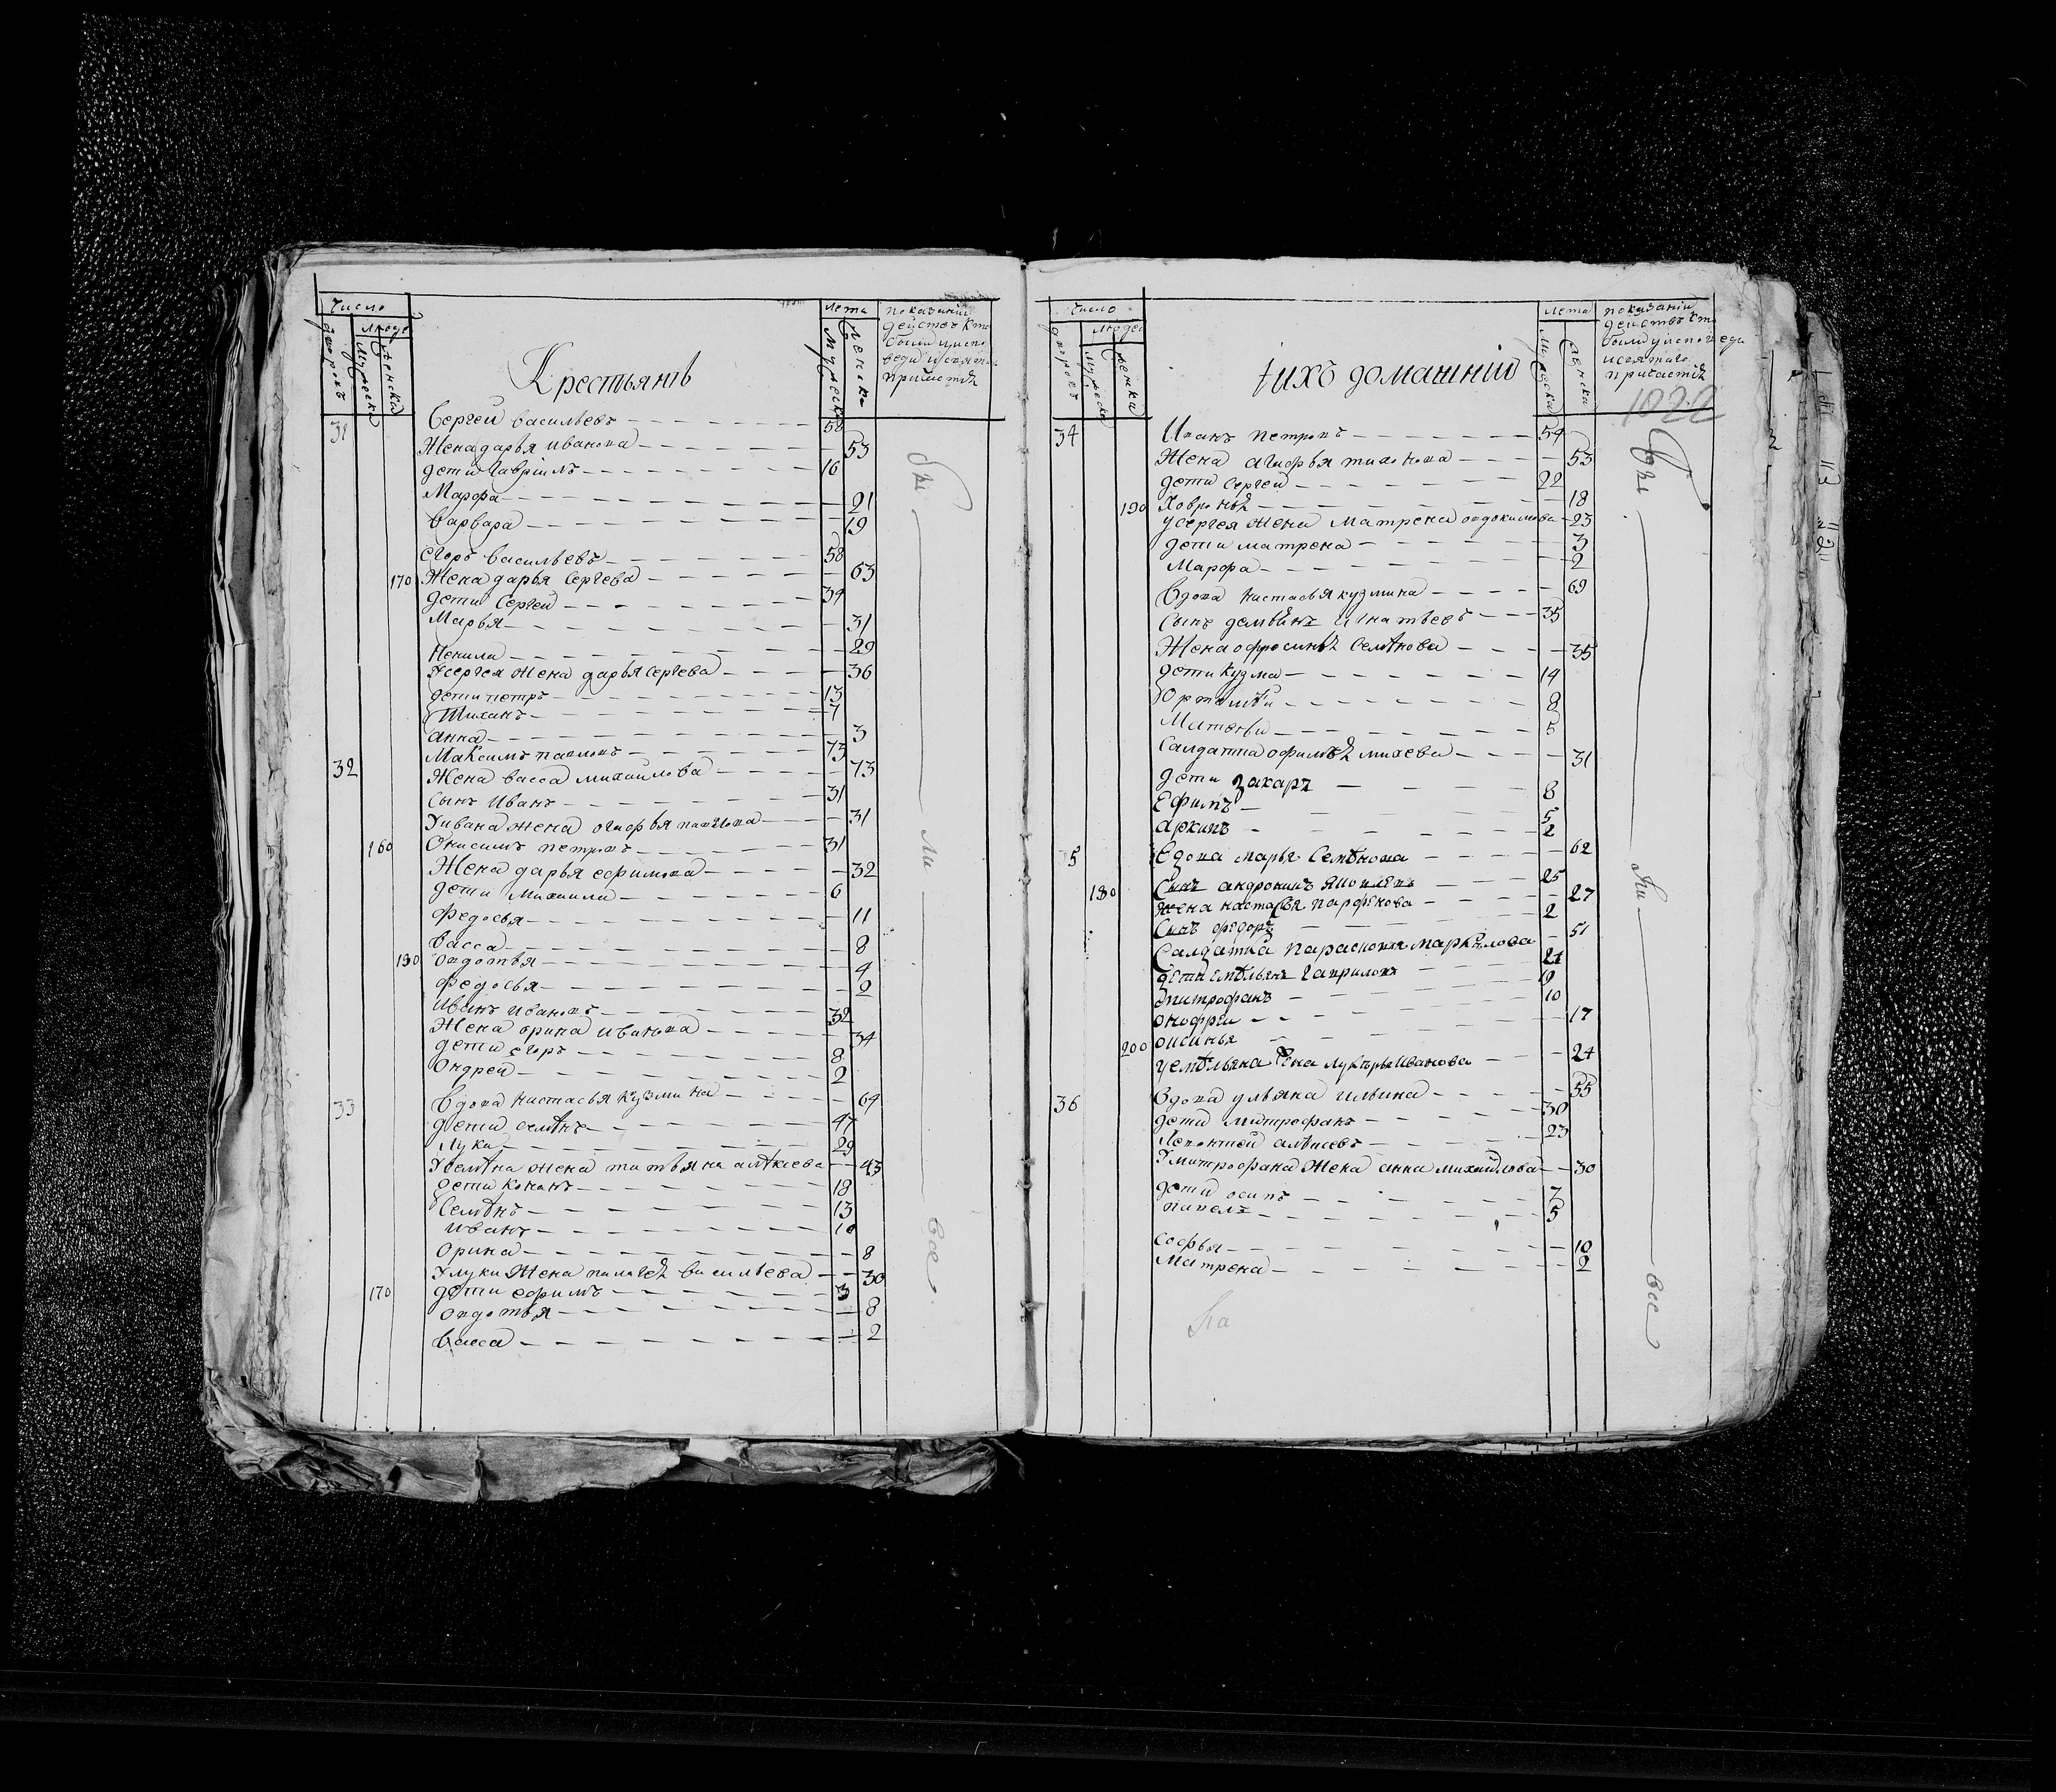 число
людей
дворовъ
мужеска
женска
Крестьянѣ
лета
мужеска
женска
показаніи
действъ кто
были уиспо
веди исвятаго
причастиѧ
31 Сергей васильевъ 58
Жена дарья иванова 53
дети Гавріилъ 16
Марфа 21
Варвара 19
егоръ васильевъ 58
170 Жена дарья Сергева 63
дети Сергей 39
Марья 31
Ненила 29
У сергея жена дарья сергева 36
дети петръ 13
Тиханъ 7
анна 3
32 Максимъ павловъ 73
Жена васса михайлова 73
сынъ иванъ 31
У ивана жена огафья павлова 31
160 Онисимъ петровъ 31
Жена дарья ефимова 32
дети Михаила 6
федосья 11
васса 8
180 овдотья 4
федосья 2
Иванъ ивановъ 32
Жена орина иванова 34
дети егоръ 8
Ондрей 2
33 Вдова настасья кузмина 64
дети семѣнъ 47
Лука 29
У семѣна жена татьяна алѣкѣева 43
дети конанъ 18
Семѣнъ 13
иванъ 10
Орина 8
У луки жена палагеѧ васильева 30
170 дети ефимъ 3
овдотья 8
Васса 2
бы ли все
число
людей
дворовъ
мужеска
женска
iихъ домашніи
лета
мужеска
женска
показаніи
действъ кто
были уисповеди
исвятаго
причастиѧ
1022
34 Иванъ петровъ 54
Жена агафья тихонова 53
дети Сергей 22
190 Ховроньѧ 18
у сергея жена матрена овдокимова 23
дети матрена 3
Марфа 2
Вдова настасья кузмина 69
Сынъ демьянъ игнатьевъ 35
Жена офросиньѧ Семѣнова 35
дети кузма 14
Ортамѣи 8
Матвѣи 5
Салдатка офимьѧ михева 31
дети Захаръ 8
Ефимъ 5
архипъ 2
35 Вдова марья Семѣнова 62
180 Сынъ андронинъ яковлевъ 25
Жена настасья парфенова 27
Сынъ федоръ 2
Салдатка парасковья маркѣлова 51
дети емѣльянъ гавриловъ 21
митрофанъ 19
онофреи 10
200 оксинья 17
у емѣльяна жена лукерья иванова 24
36 Вдова ульяна ильина 55
дети митрофанъ 30
Леонтей алѣксевъ 23
У митрофана жена анна михайлова 30
дети осипъ 7
павелъ 5
софья 10
Матрена 2
бы ли все